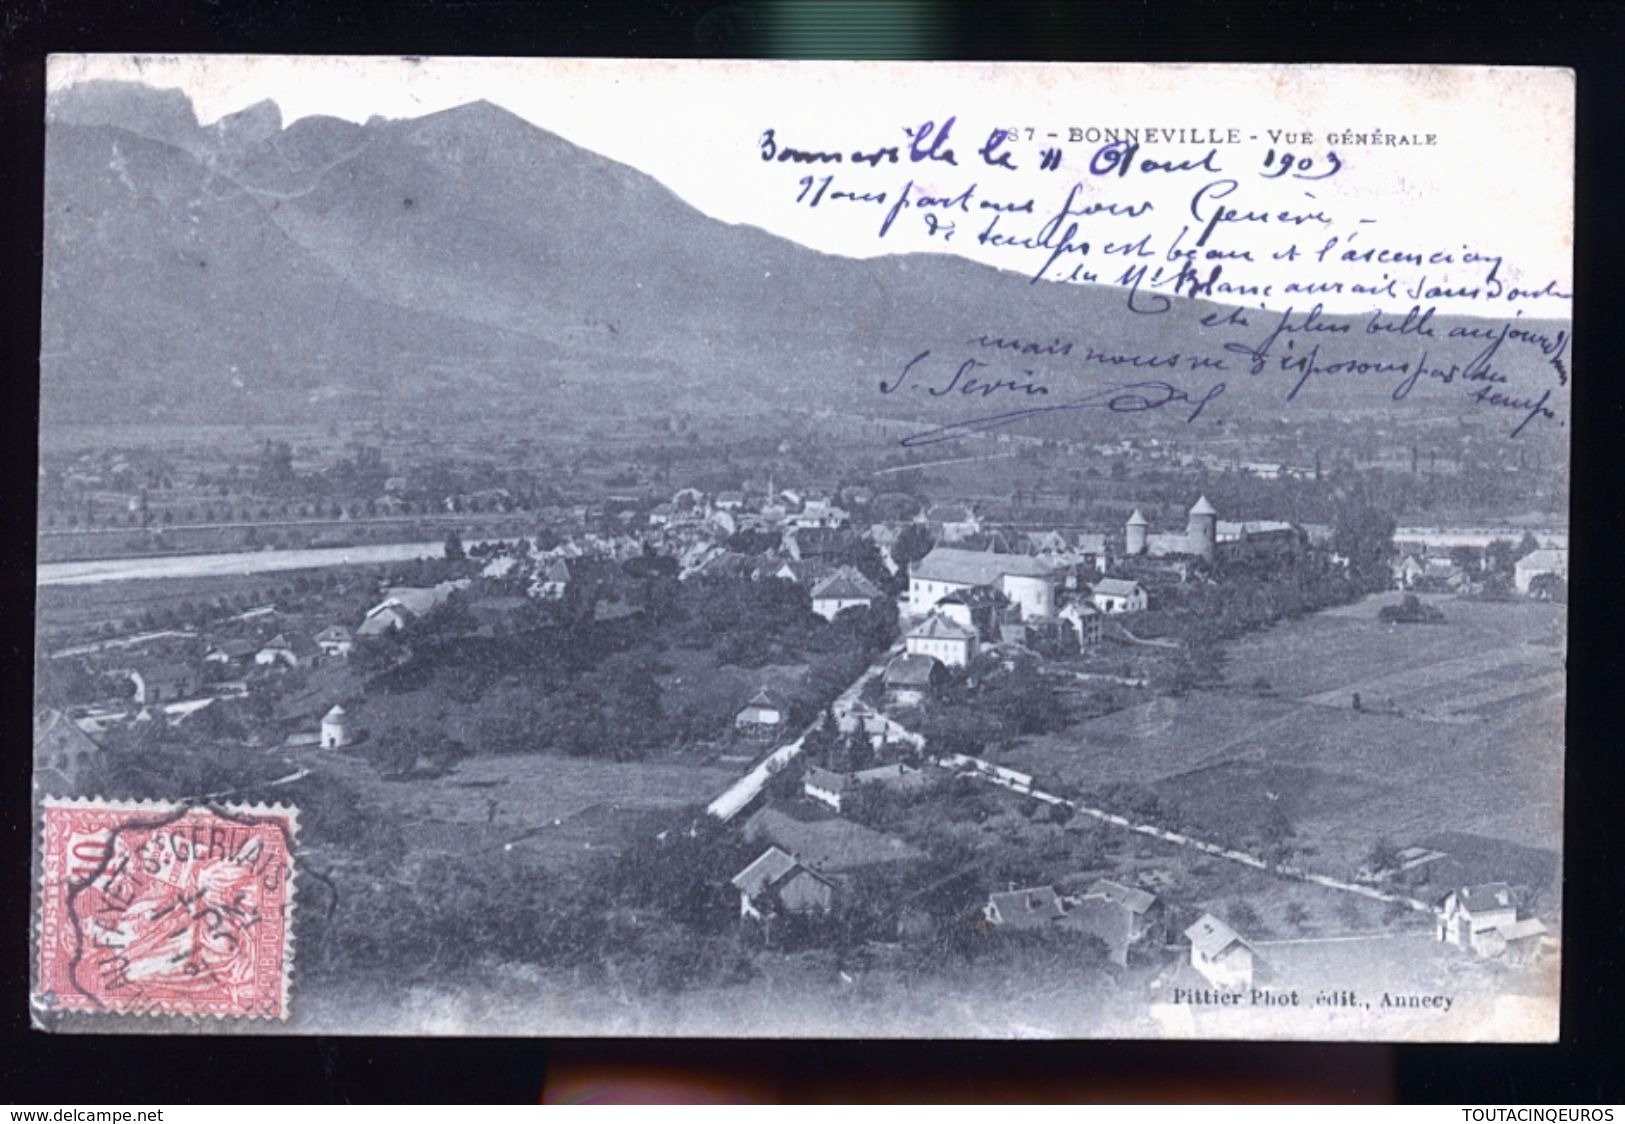 487 - BONNEVILLE - VUE GÉNÉRALE
Bonneville le 11 Aout 1903
Nous partons pour Genève -
Le temps est beau et l'ascencion
du Mt Blanc aurait sans doute
été plus belle aujourd'hui
mais nous ne disposons pas du
temps.
S. Sévin
10
POSTES
FAYET ST GERVAIS
Pittier Phot édit., Annecy
delcampe.net
TOUTACINQEUROS